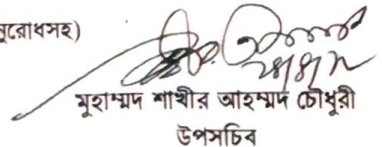 নুরোধসহ)
মুহাম্মদ শাখীর আহম্মদ চৌধুরী
উপসচিব